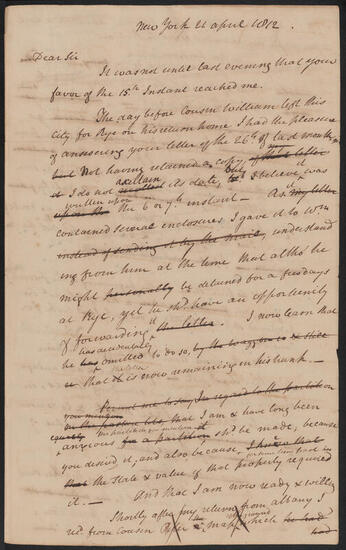 New York 21 April 1812.
Dear Sir
It was not until last evening that your
favor of the 15th Instant reached me.
The day before Cousin William left this
city for Rye on his return home I had the pleasure
of answering your letter of the 26th of last month,
but Not having retained a copy of that letter
it I do not recollect its date, but I believe it was
written upon the 6 or 7th instant — As it my letter
contained several enclosures, I gave it to Wm
instead of sending it by the mail, understand
ing from him at the time that altho' he
might personally be detained for a few days
at Rye, yet he shd. have an opportunity
of forwarding it the letter. I now learn that
he has accidentally omitted to do so, by the
it that it is now remaining in his trunk. —
Permit me to say, In regard to the partition
you mention
equally that I am & have long been
anxious for a partition shd. be made, because
you desired it, and also because
that the state & value of that property required
it. — And that I am now ready & willing
Shortly after my return from Albany I
recd. from Cousin Peter the map which he had
had